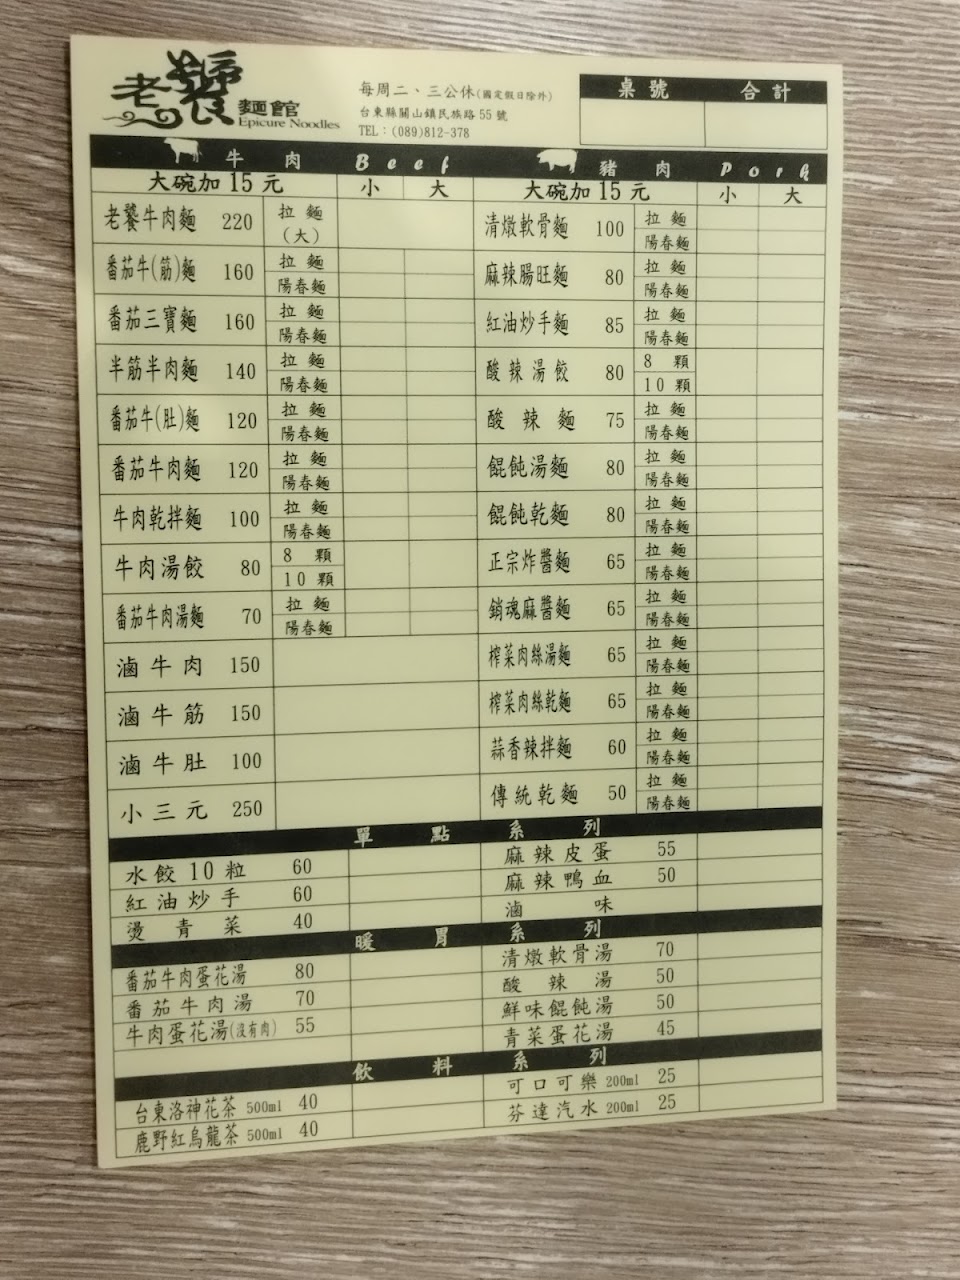 老饕麵館
Epicure Noodles
每周二、三公休(國定假日除外)
台東縣關山鎮民族路55號
TEL:(089)812-378
桌號 合計
牛肉 Beef
大碗加15元 小 大
老饕牛肉麵 220 拉麵(大)
番茄牛(筋)麵 160 拉麵 陽春麵
番茄三寶麵 160 拉麵 陽春麵
半筋半肉麵 140 拉麵 陽春麵
番茄牛(肚)麵 120 拉麵 陽春麵
番茄牛肉麵 120 拉麵 陽春麵
牛肉乾拌麵 100 拉麵 陽春麵
牛肉湯餃 80 8顆 10顆
番茄牛肉湯麵 70 拉麵 陽春麵
滷牛肉 150
滷牛筋 150
滷牛肚 100
小三元 250
豬肉 Pork
大碗加15元 小 大
清燉軟骨麵 100 拉麵 陽春麵
麻辣腸旺麵 80 拉麵 陽春麵
紅油炒手麵 85 拉麵 陽春麵
酸辣湯餃 80 8顆 10顆
酸辣麵 75 拉麵 陽春麵
餛飩湯麵 80 拉麵 陽春麵
餛飩乾麵 80 拉麵 陽春麵
正宗炸醬麵 65 拉麵 陽春麵
銷魂麻醬麵 65 拉麵 陽春麵
榨菜肉絲湯麵 65 拉麵 陽春麵
榨菜肉絲乾麵 65 拉麵 陽春麵
蒜香辣拌麵 60 拉麵 陽春麵
傳統乾麵 50 拉麵 陽春麵
單點系列
水餃10粒 60
紅油炒手 60
燙青菜 40
麻辣皮蛋 55
麻辣鴨血 50
滷味
暖胃系列
番茄牛肉蛋花湯 80
番茄牛肉湯 70
牛肉蛋花湯(沒有肉) 55
清燉軟骨湯 70
酸辣湯 50
鮮味餛飩湯 50
青菜蛋花湯 45
飲料系列
台東洛神花茶 500ml 40
鹿野紅烏龍茶 500ml 40
可口可樂 200ml 25
芬達汽水 200ml 25